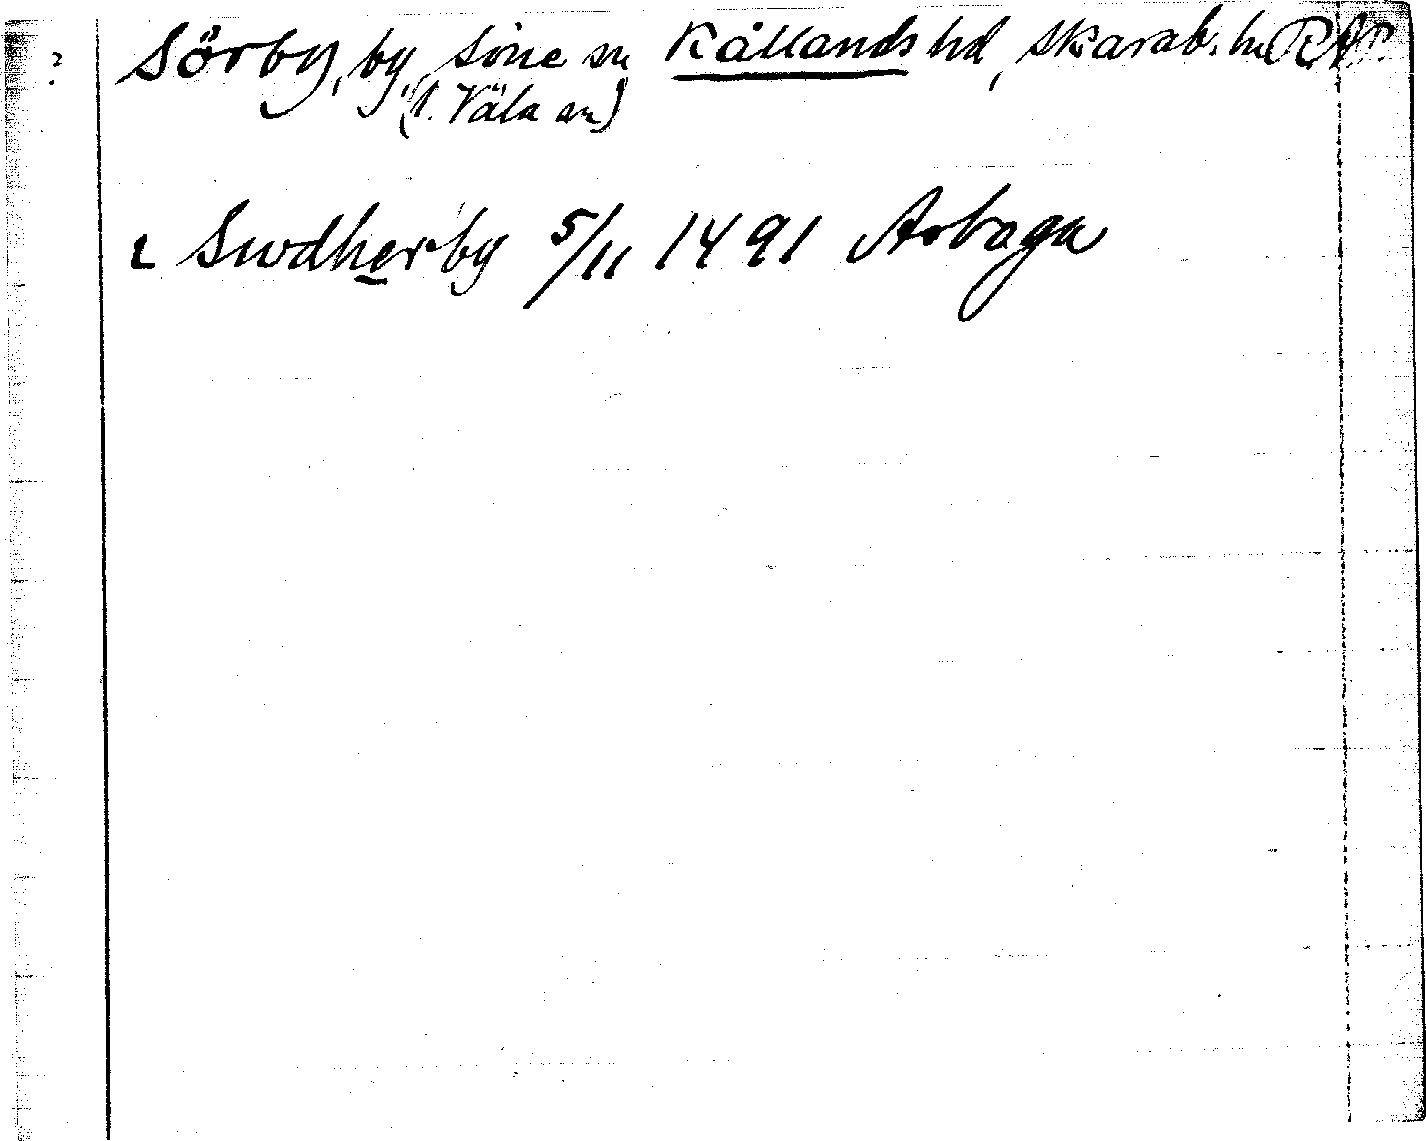 ? Sörby, by, Söne sn Kållands hd, Skarab. ln RAP
(l. Väla sn)
i Swdherby 5/11 1491 Arboga